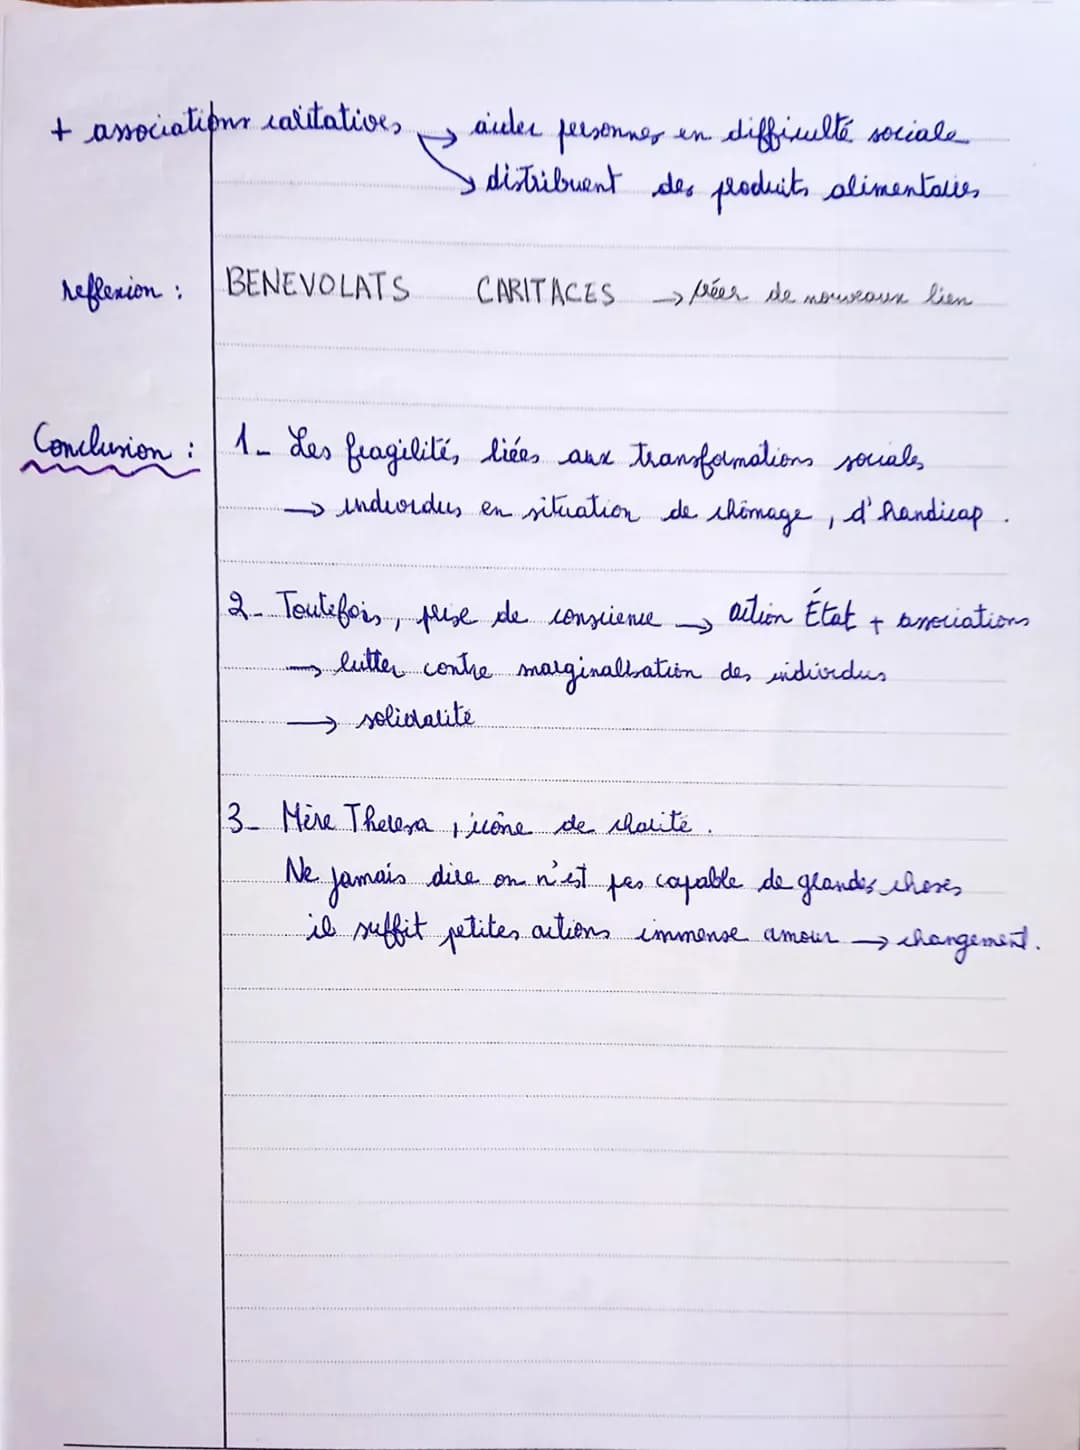 + associations caritatives → aider personnes en difficulté sociale
→ distribuent des produits alimentaires
reflexion : BENEVOLATS CARITACES → créer de nouveaux lien
Conclusion : 1_ Les fragilités liées aux transformations sociales
→ individus en situation de chômage, d'handicap.
2_ Toutefois, prise de conscience → action État + associations
→ lutter contre marginalisation des individus
→ solidarité
3_ Mère Theresa, icône de charité.
Ne jamais dire on n'est pas capable de grandes choses
il suffit petites actions immense amour → changement.